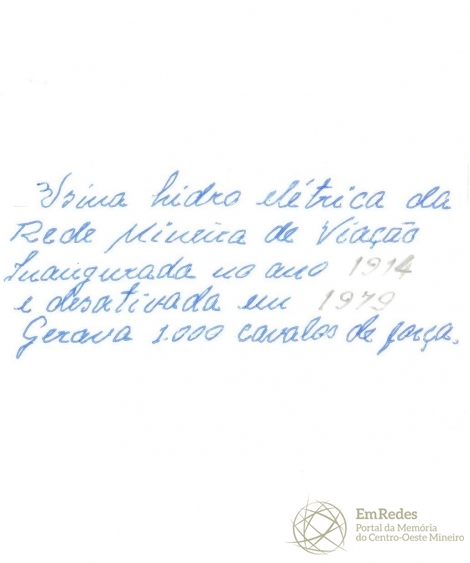 Usina hidro elétrica da
Rede Mineira de Viação
Inaugurada no ano 1914
e desativada em 1979
Gerava 1.000 cavalos de força.
EmRedes
Portal da Memória
do Centro-Oeste Mineiro